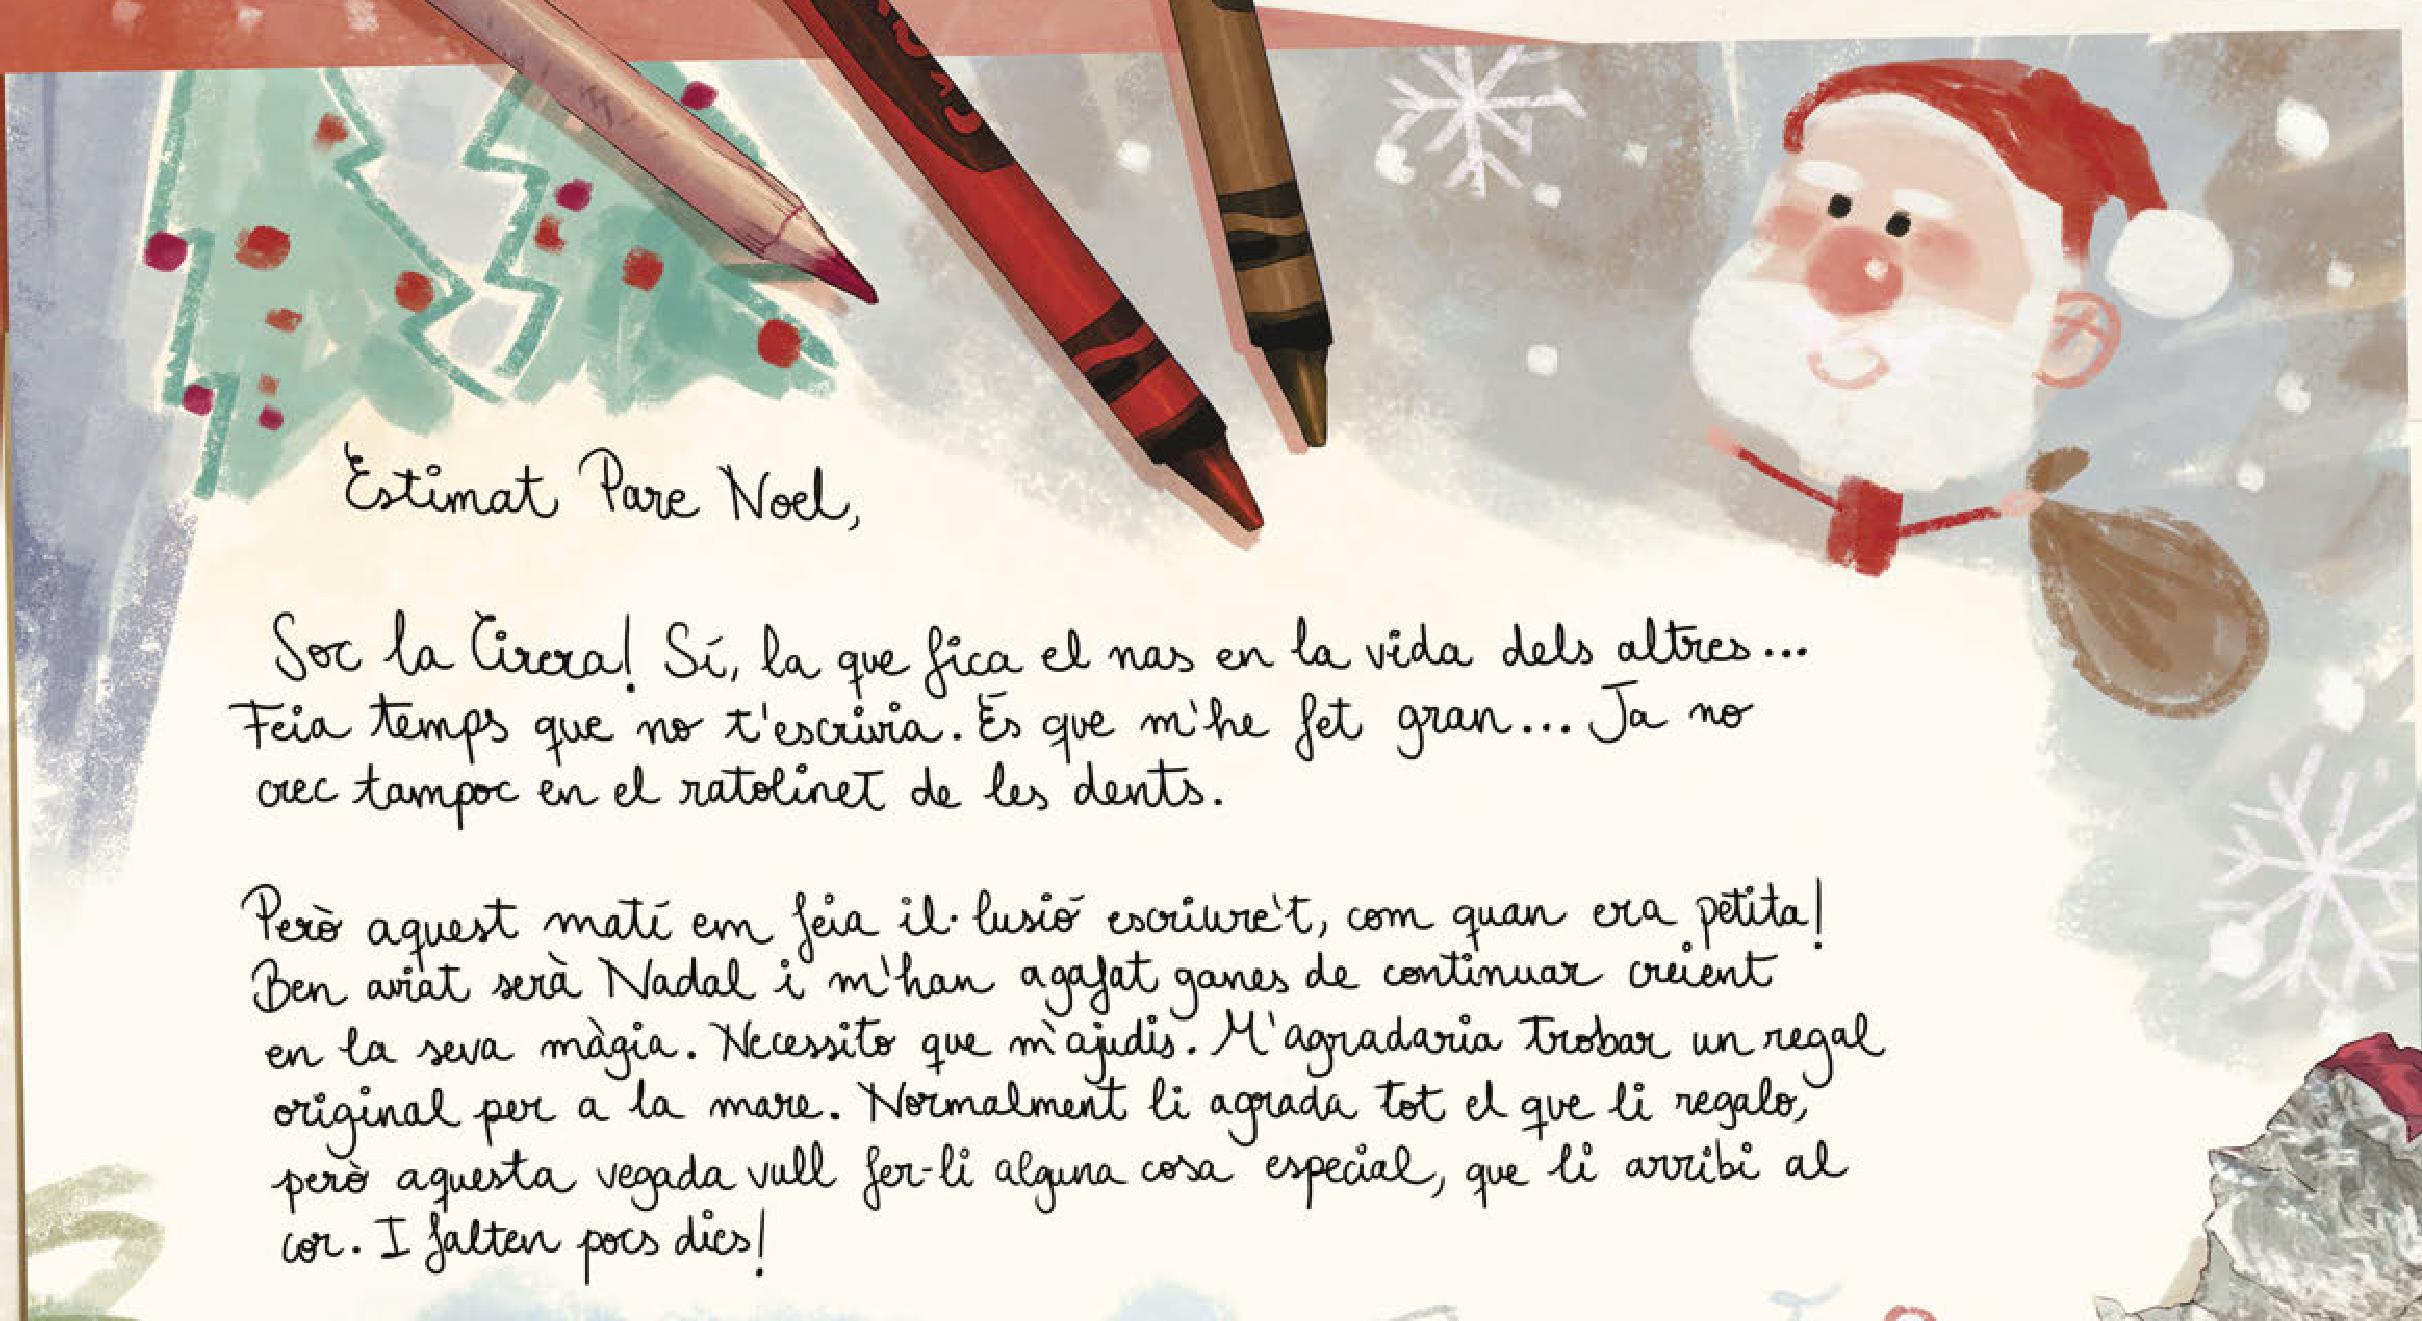 Estimat Pare Noel,
Soc la Cirera! Sí, la que fica el nas en la vida dels altres...
Feia temps que no t'escrivia. És que m'he fet gran... Ja no
crec tampoc en el ratolinet de les dents.
Però aquest matí em feia il·lusió escriure't, com quan era petita!
Ben aviat serà Nadal i m'han agafat ganes de continuar creient
en la seva màgia. Necessito que m'ajudis. M'agradaria trobar un regal
original per a la mare. Normalment li agrada tot el que li regalo,
però aquesta vegada vull fer-li alguna cosa especial, que li arribi al
cor. I falten pocs dies!